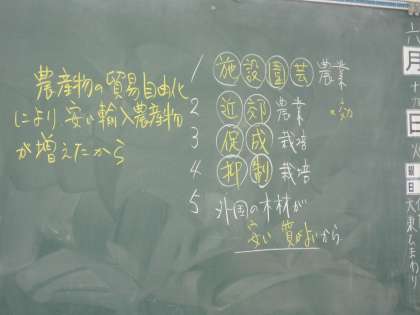 農産物の貿易自由化
により安い輸入農産物
が増えたから
1 施設園芸農業
2 近郊農業
3 促成栽培
4 抑制栽培
5 外国の木材が
安い 質がよいから
六月十
日火